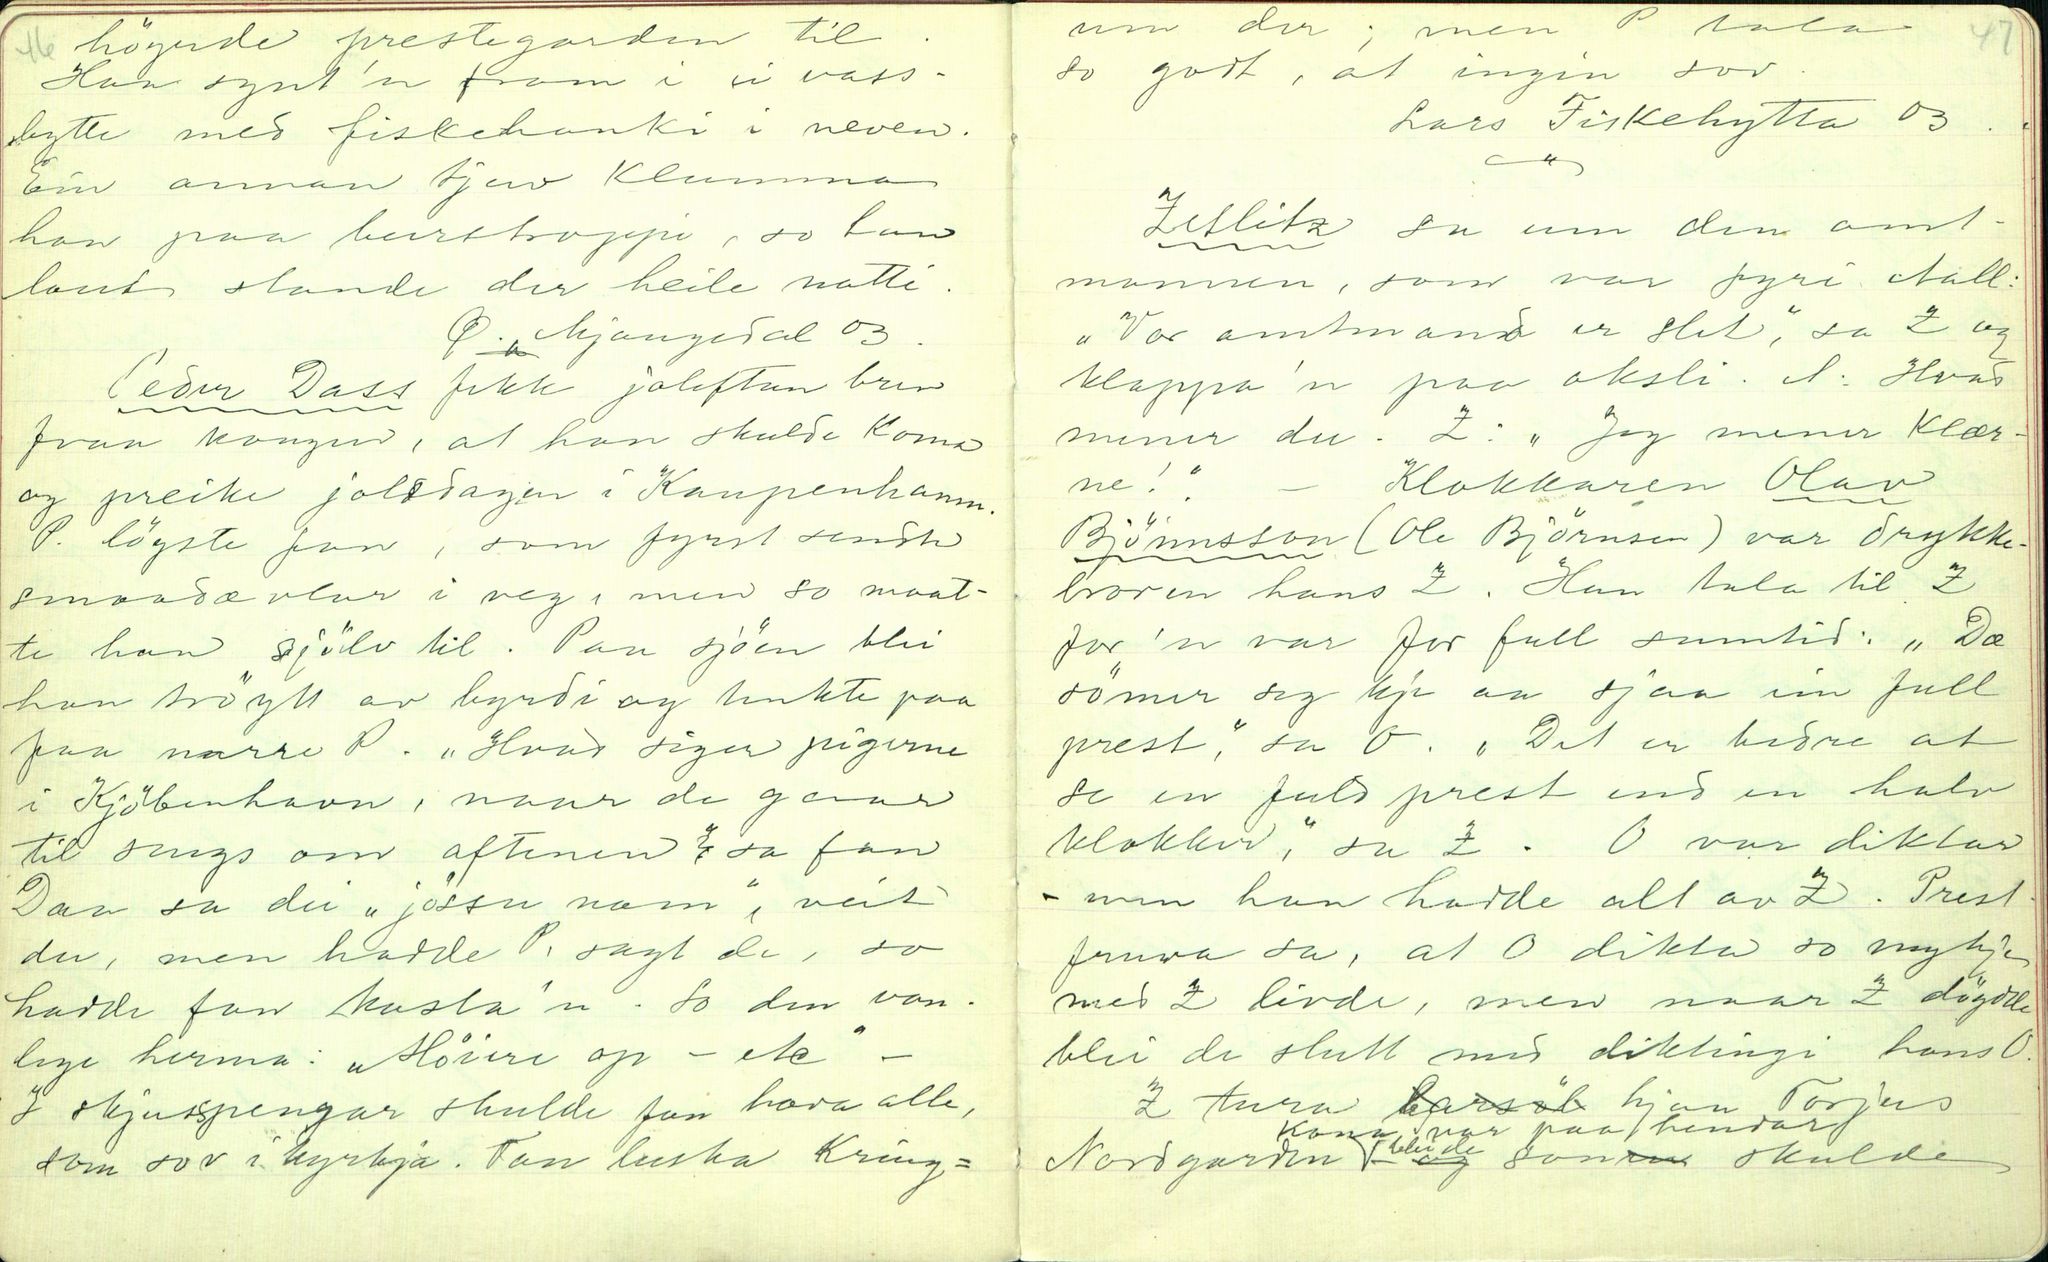 46
högrde prestegarden til.
Han synt'n fram i ei vass-
bytte med fiskehanki i neven.
Ein annan tjuv klumma
han paa burstroppi, so han
laut stande der heile natti.
Ø. Mjaugedal 03.
Peder Dass fekk joleftan brev
fraa kongen, at han skulde koma
og preike joledagen i Kaupenhamn.
P. löyste fan, som fyrst sendte
smaadævlar i veg, men so maat-
te han sjölv til. Paa sjöen blei
han tröytt av byrdi og tenkte paa
faa narre P. „Hvad siger pigerne
i Kjöbenhavn, naar de gaar
til sengs om aftenen"? sa fan
Daa sa dei „jössu namn", veit
du, men hadde P. sagt de, so
hadde fan kasta'n. So den van-
lege herma: „Höiere op – etc" –
I skjusspengar skulde fan hava alle,
som sov i kyrkja. Fan luska kring=
47
um der; men P tala
so godt, at ingin sov.
Lars Fiskehytta 03.
"
Zetlitz sa um den amt-
mannen, som var fyri Aall:
„Vor amtmand er slet", sa Z og
klappa'n paa aksli. A: Hvad
mener du. Z: „Jeg mener klær-
ne!" – Klokkaren Olav
Björnsson (Ole Björnsen) var drykke-
broren hans Z. Han tala til Z
for'n var for full sumtid: „Dæ
sömer seg kje aa sjaa ein full
prest", sa O. „Det er bedre at
se en fuld prest end en halv
klokker", sa Z. O var diktar
- men han hadde alt av Z. Prest-
fruva sa, at O dikta so mykje
med Z livde, men naar Z döydde
blei de slutt med diktingi hans O.
Z tura barsöl hjaa Torjus
kona var paa hendar
Nordgarden – og blei de sonen skulde